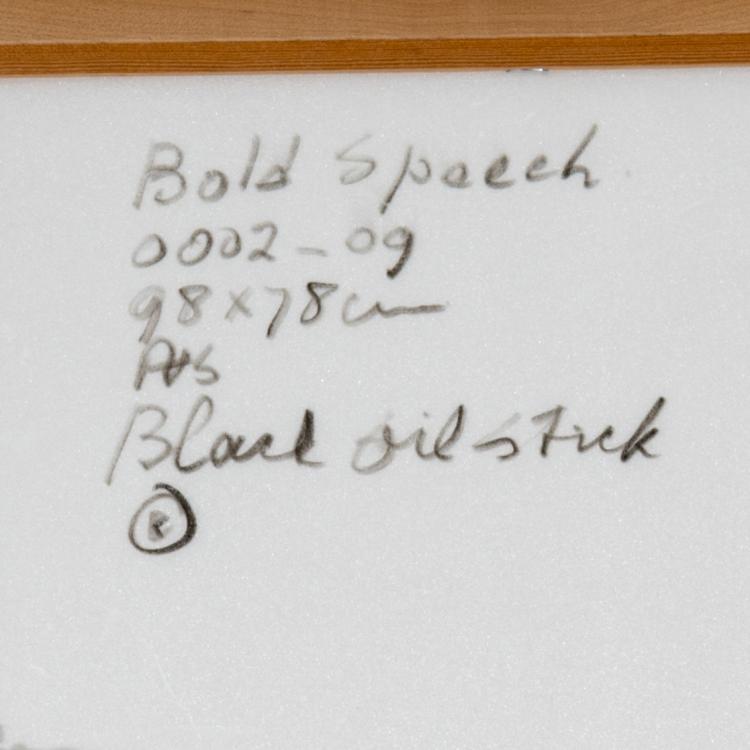 Bold Speech
0002-09
98x78cm
Black oil stick
®